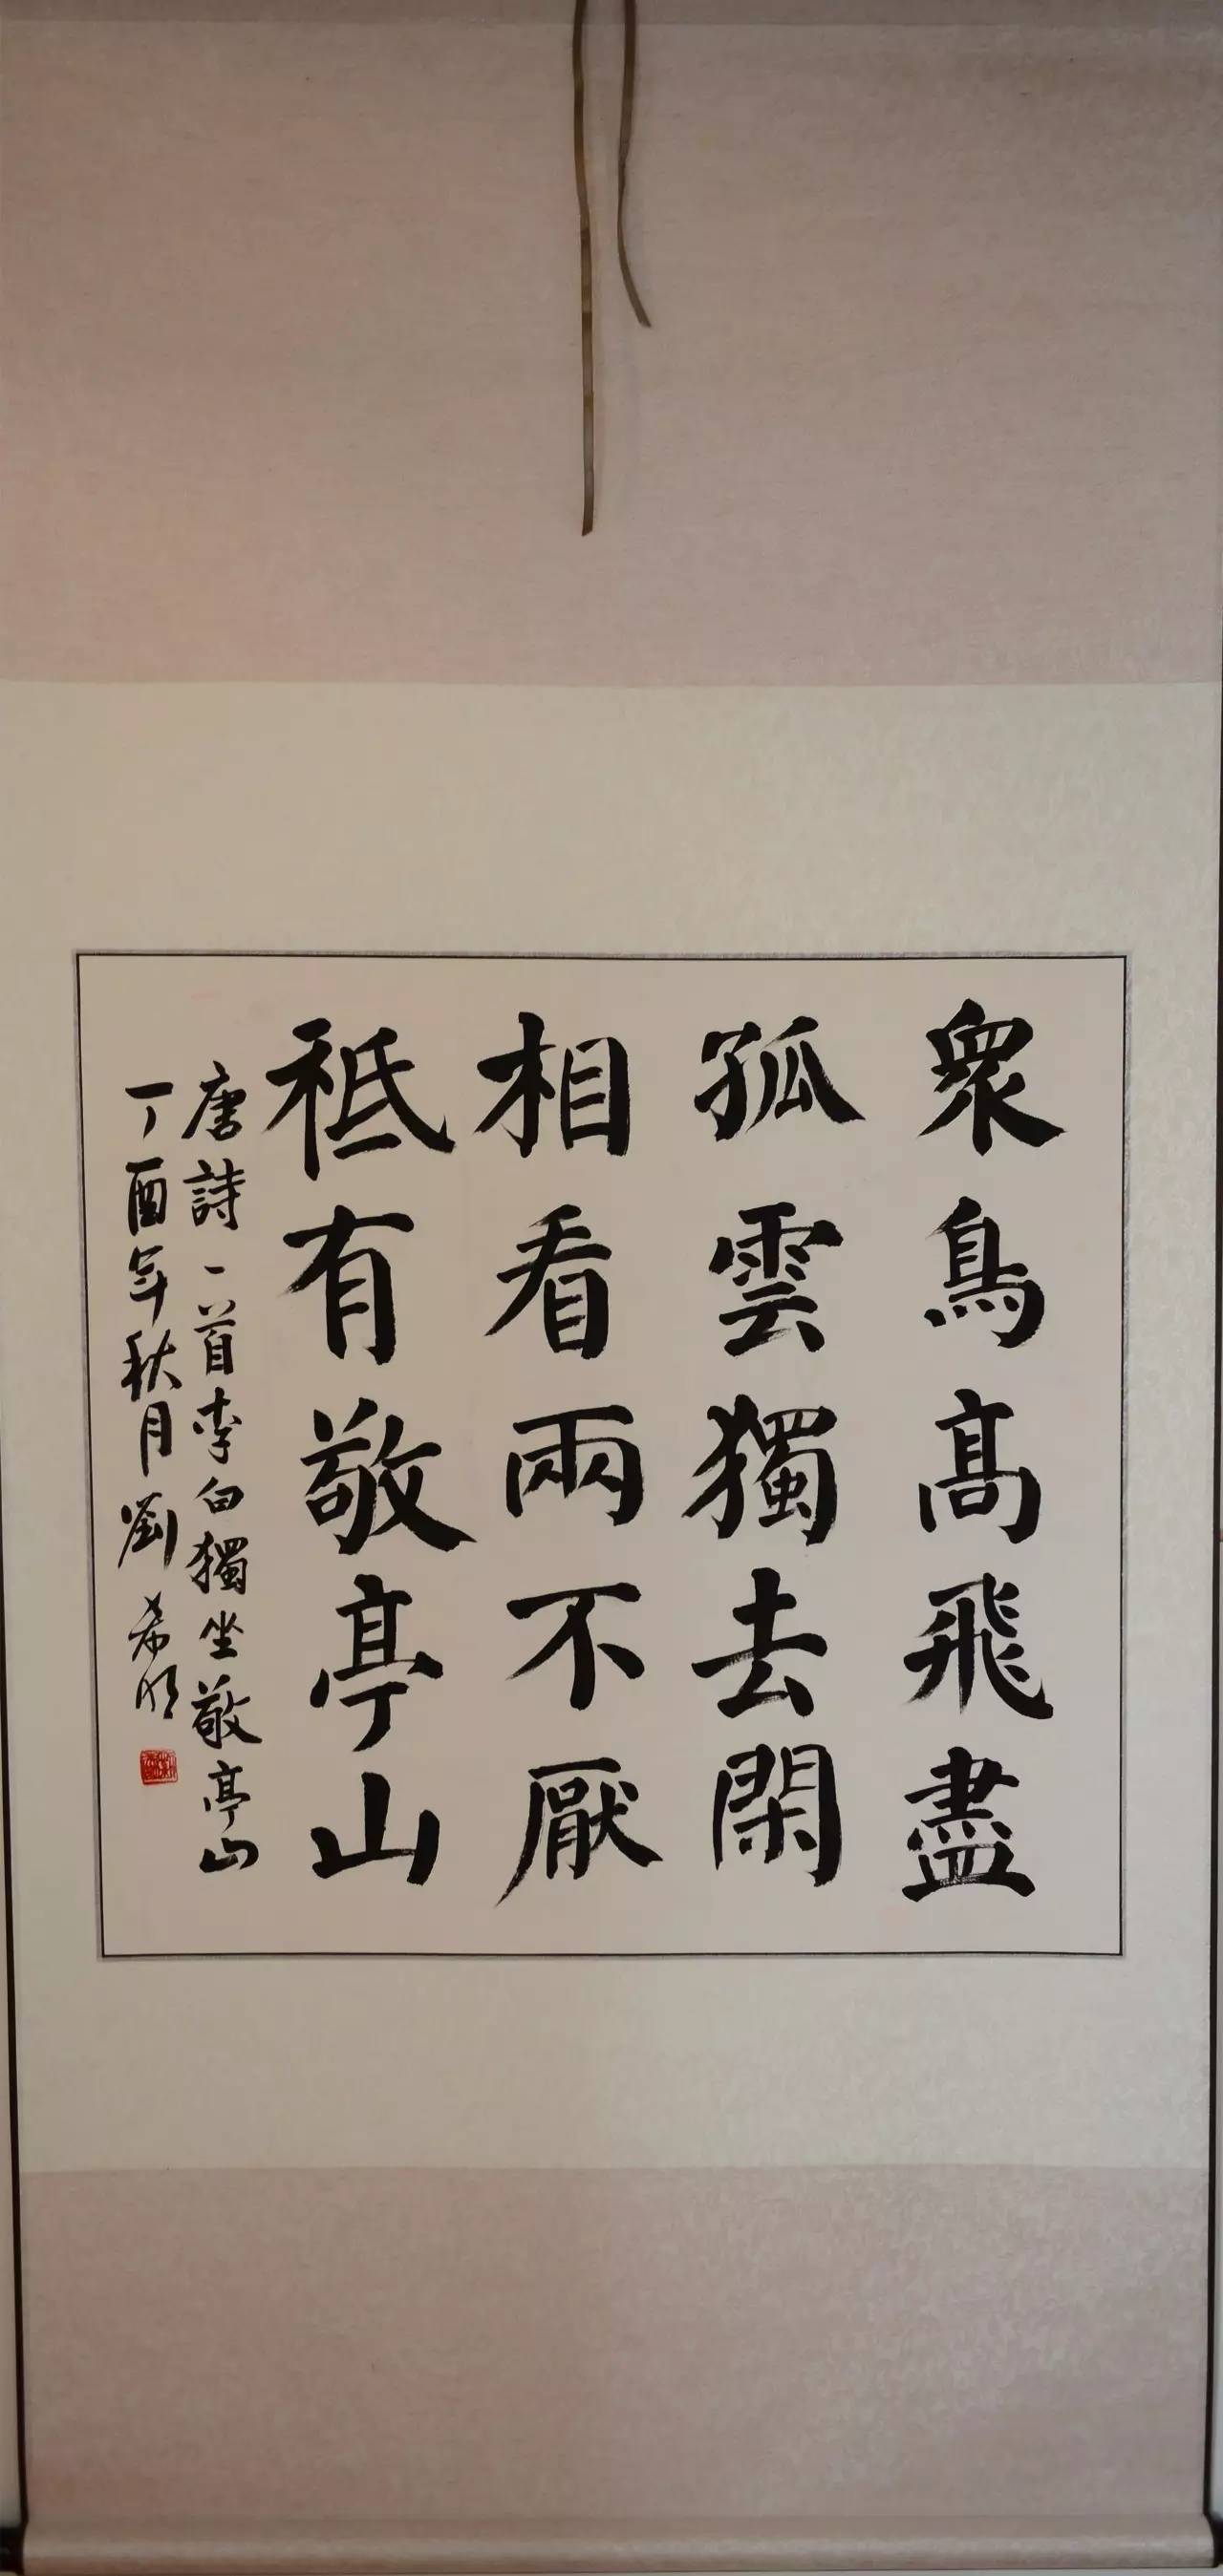 眾鳥高飛盡
孤雲獨去閑
相看兩不厭
秪有敬亭山
唐詩一首李白獨坐敬亭山
丁酉年秋月劉希明